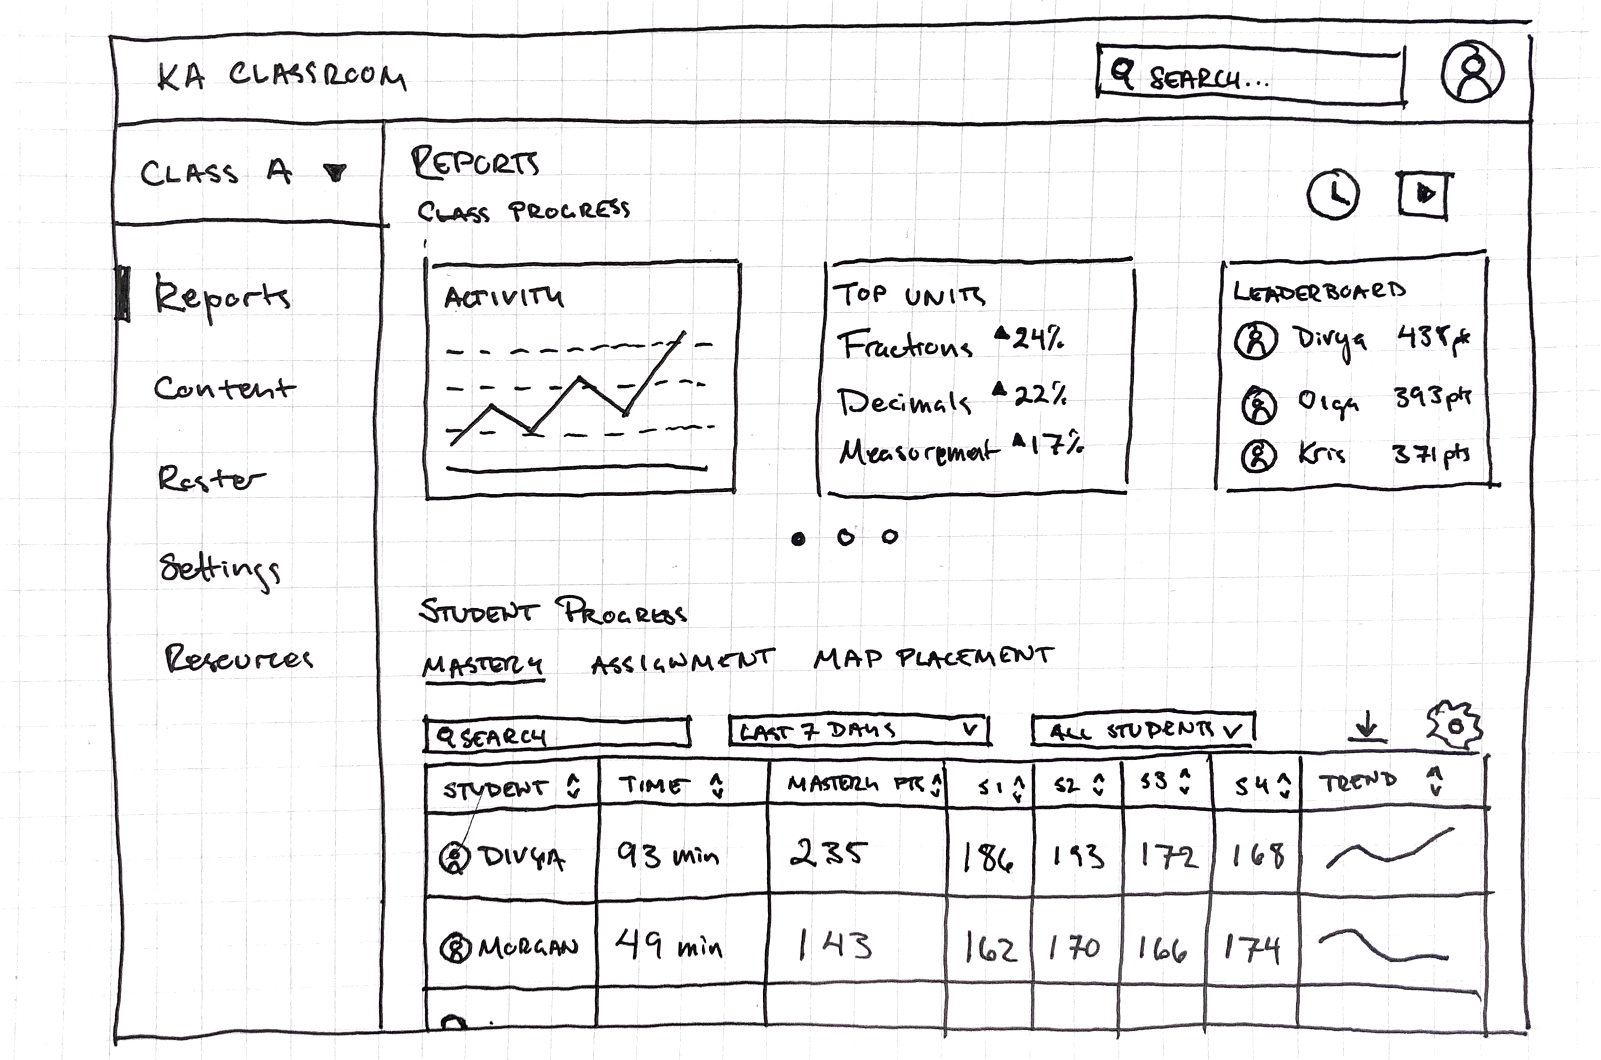 KA CLASSROOM
SEARCH...
CLASS A
Reports
Content
Roster
Settings
Resources
REPORTS
CLASS PROGRESS
ACTIVITY
TOP UNITS
Fractions ▲24%
Decimals ▲22%
Measurement ▲17%
LEADERBOARD
Divya 438pts
Olga 393pts
Kris 371pts
STUDENT PROGRESS
MASTERY ASSIGNMENT MAP PLACEMENT
SEARCH LAST 7 DAYS ALL STUDENTS
STUDENT TIME MASTERY PTS S1 S2 S3 S4 TREND
DIVYA 93 min 235 186 193 172 168
MORGAN 49 min 143 162 170 166 174